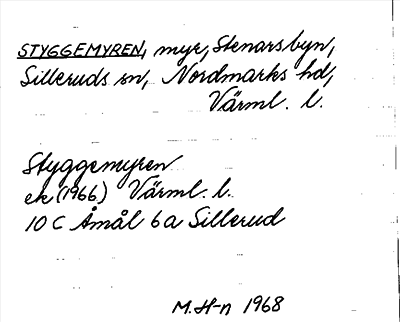 STYGGEMYREN, myr, Stenarsbyn,
Silleruds sn, Nordmarks hd,
Värml. l.
Styggemyren
ek (1966) Värml. l.
10 C Åmål 6a Sillerud
M. H-n 1968